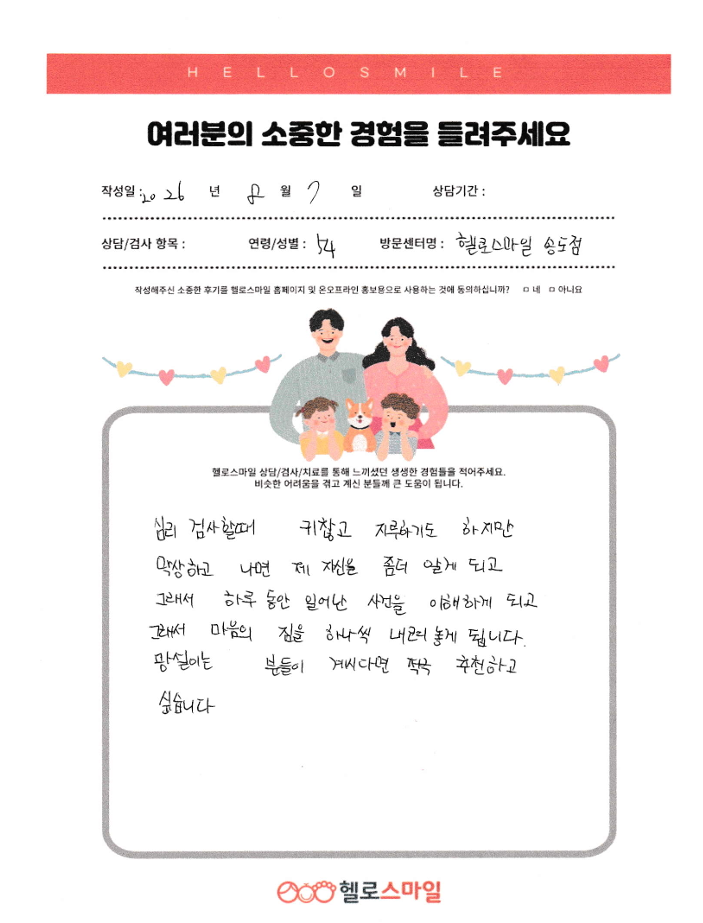 HELLOSMILE
여러분의 소중한 경험을 들려주세요
작성일 : 2026 년 8 월 7 일 상담기간 :
상담/검사 항목 : 연령/성별 : 54 방문센터명 : 헬로스마일 송도점
작성해주신 소중한 후기를 헬로스마일 홈페이지 및 온오프라인 홍보용으로 사용하는 것에 동의하십니까? ㅁ 네 ㅁ 아니요
헬로스마일 상담/검사/치료를 통해 느끼셨던 생생한 경험들을 적어주세요.
비슷한 어려움을 겪고 계신 분들께 큰 도움이 됩니다.
심리 검사할때 귀찮고 지루하기도 하지만
막상하고 나면 제 자신을 좀더 알게 되고
그래서 하루 동안 일어난 사건을 이해하게 되고
그래서 마음의 짐을 하나씩 내려놓게 됩니다.
망설이는 분들이 계시다면 적극 추천하고
싶습니다
헬로스마일